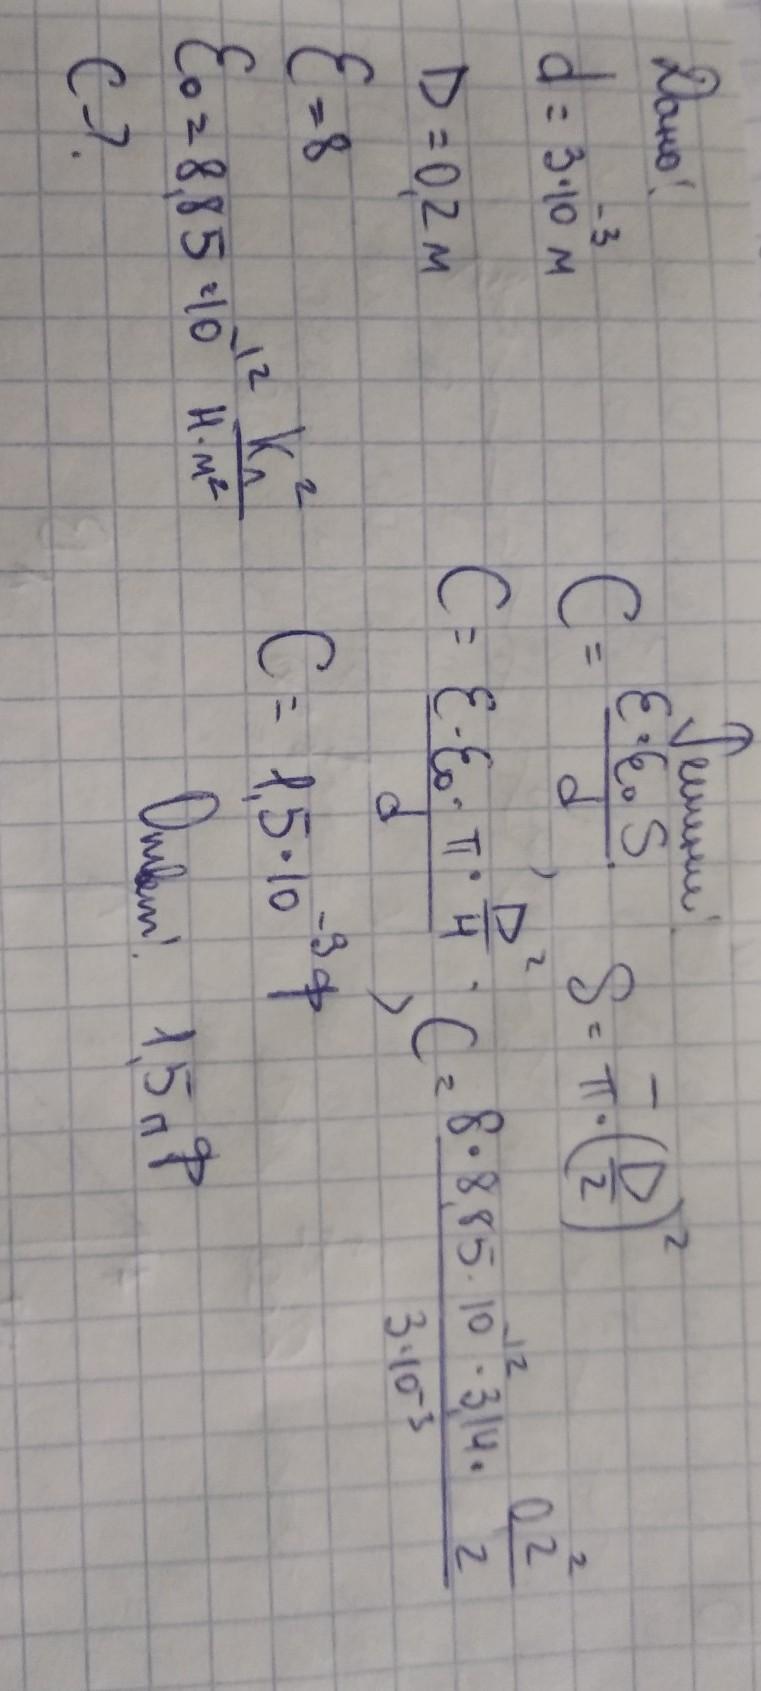 Дано:
d = 3·10⁻³ м
D = 0,2 м
Ɛ = 8
Ɛ₀ = 8,85·10⁻¹² Кл²/Н·м²
C-?
Решение:
C = Ɛ·Ɛ₀S/d, S = π·(D/2)²
C = Ɛ·Ɛ₀·π·D²/4/d, C = 8·8,85·10⁻¹²·3,14·0,2²/2/3·10⁻³
C = 1,5·10⁻⁹ Ф
Ответ: 1,5 пФ